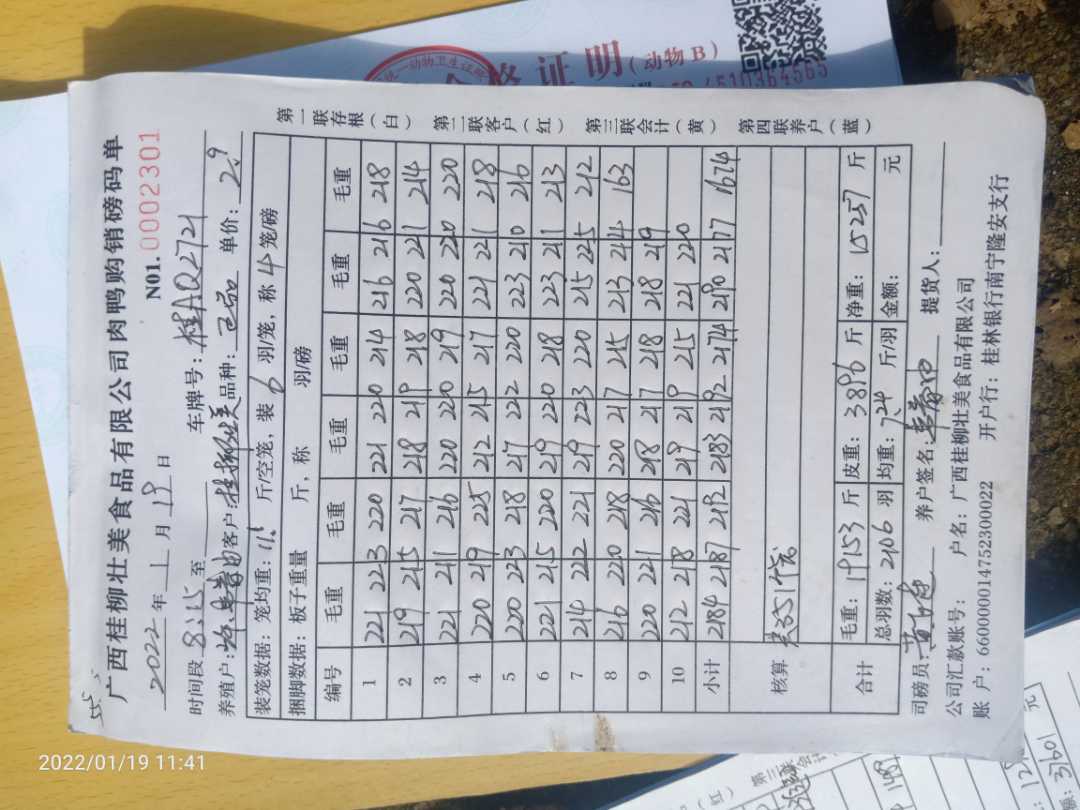 合格证明(动物B)
广西桂柳壮美食品有限公司肉鸭购销磅码单
2022年1月19日 N01.0002301
时间段 8:15 至 车牌号:桂AQ2721
养殖户: 客户:桂柳壮美 品种: 单价:2.9
装笼数据:笼均重:11.5斤/空笼,装6羽/笼,称4笼/磅
捆脚数据:板子重量 斤,称 羽/磅
编号 毛重 毛重 毛重 毛重 毛重 毛重
1 221 223 220 221 220 214 216 216 218
2 219 215 217 218 219 218 220 221 214
3 221 211 216 220 220 219 220 220 220
4 220 219 225 212 215 217 221 221 218
5 220 223 218 217 222 220 223 210 216
6 221 215 220 219 220 218 223 211 213
7 214 222 221 219 223 220 215 225 212
8 216 220 218 220 217 215 213 214 163
9 220 221 216 218 217 218 218 219
10 212 218 221 219 219 215 221 220
小计 2184 2187 2192 2183 2192 2174 2190 2177 1674
核算
合计 毛重:19153斤 皮重:3896斤 净重:15257斤
总羽数:2106羽 均重:7.24斤/羽 金额: 元
司磅员: 养户签名: 提货人:
公司汇款账号: 户名:广西桂柳壮美食品有限公司
账户:660000014752300022 开户行:桂林银行南宁隆安支行
第一联存根(白) 第二联客户(红) 第三联会计(黄) 第四联养户(蓝)
2022/01/19 11:41